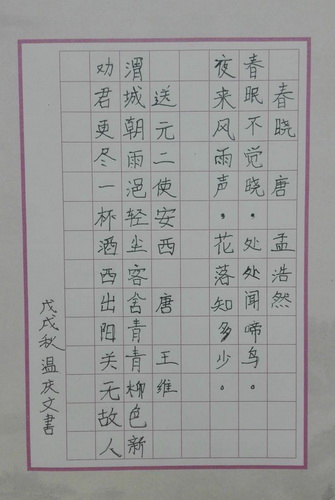 春晓 唐 孟浩然
春眠不觉晓，处处闻啼鸟。
夜来风雨声，花落知多少。
送元二使安西 唐 王维
渭城朝雨浥轻尘客舍青青柳色新
劝君更尽一杯酒西出阳关无故人
戊戌秋 温庆文書